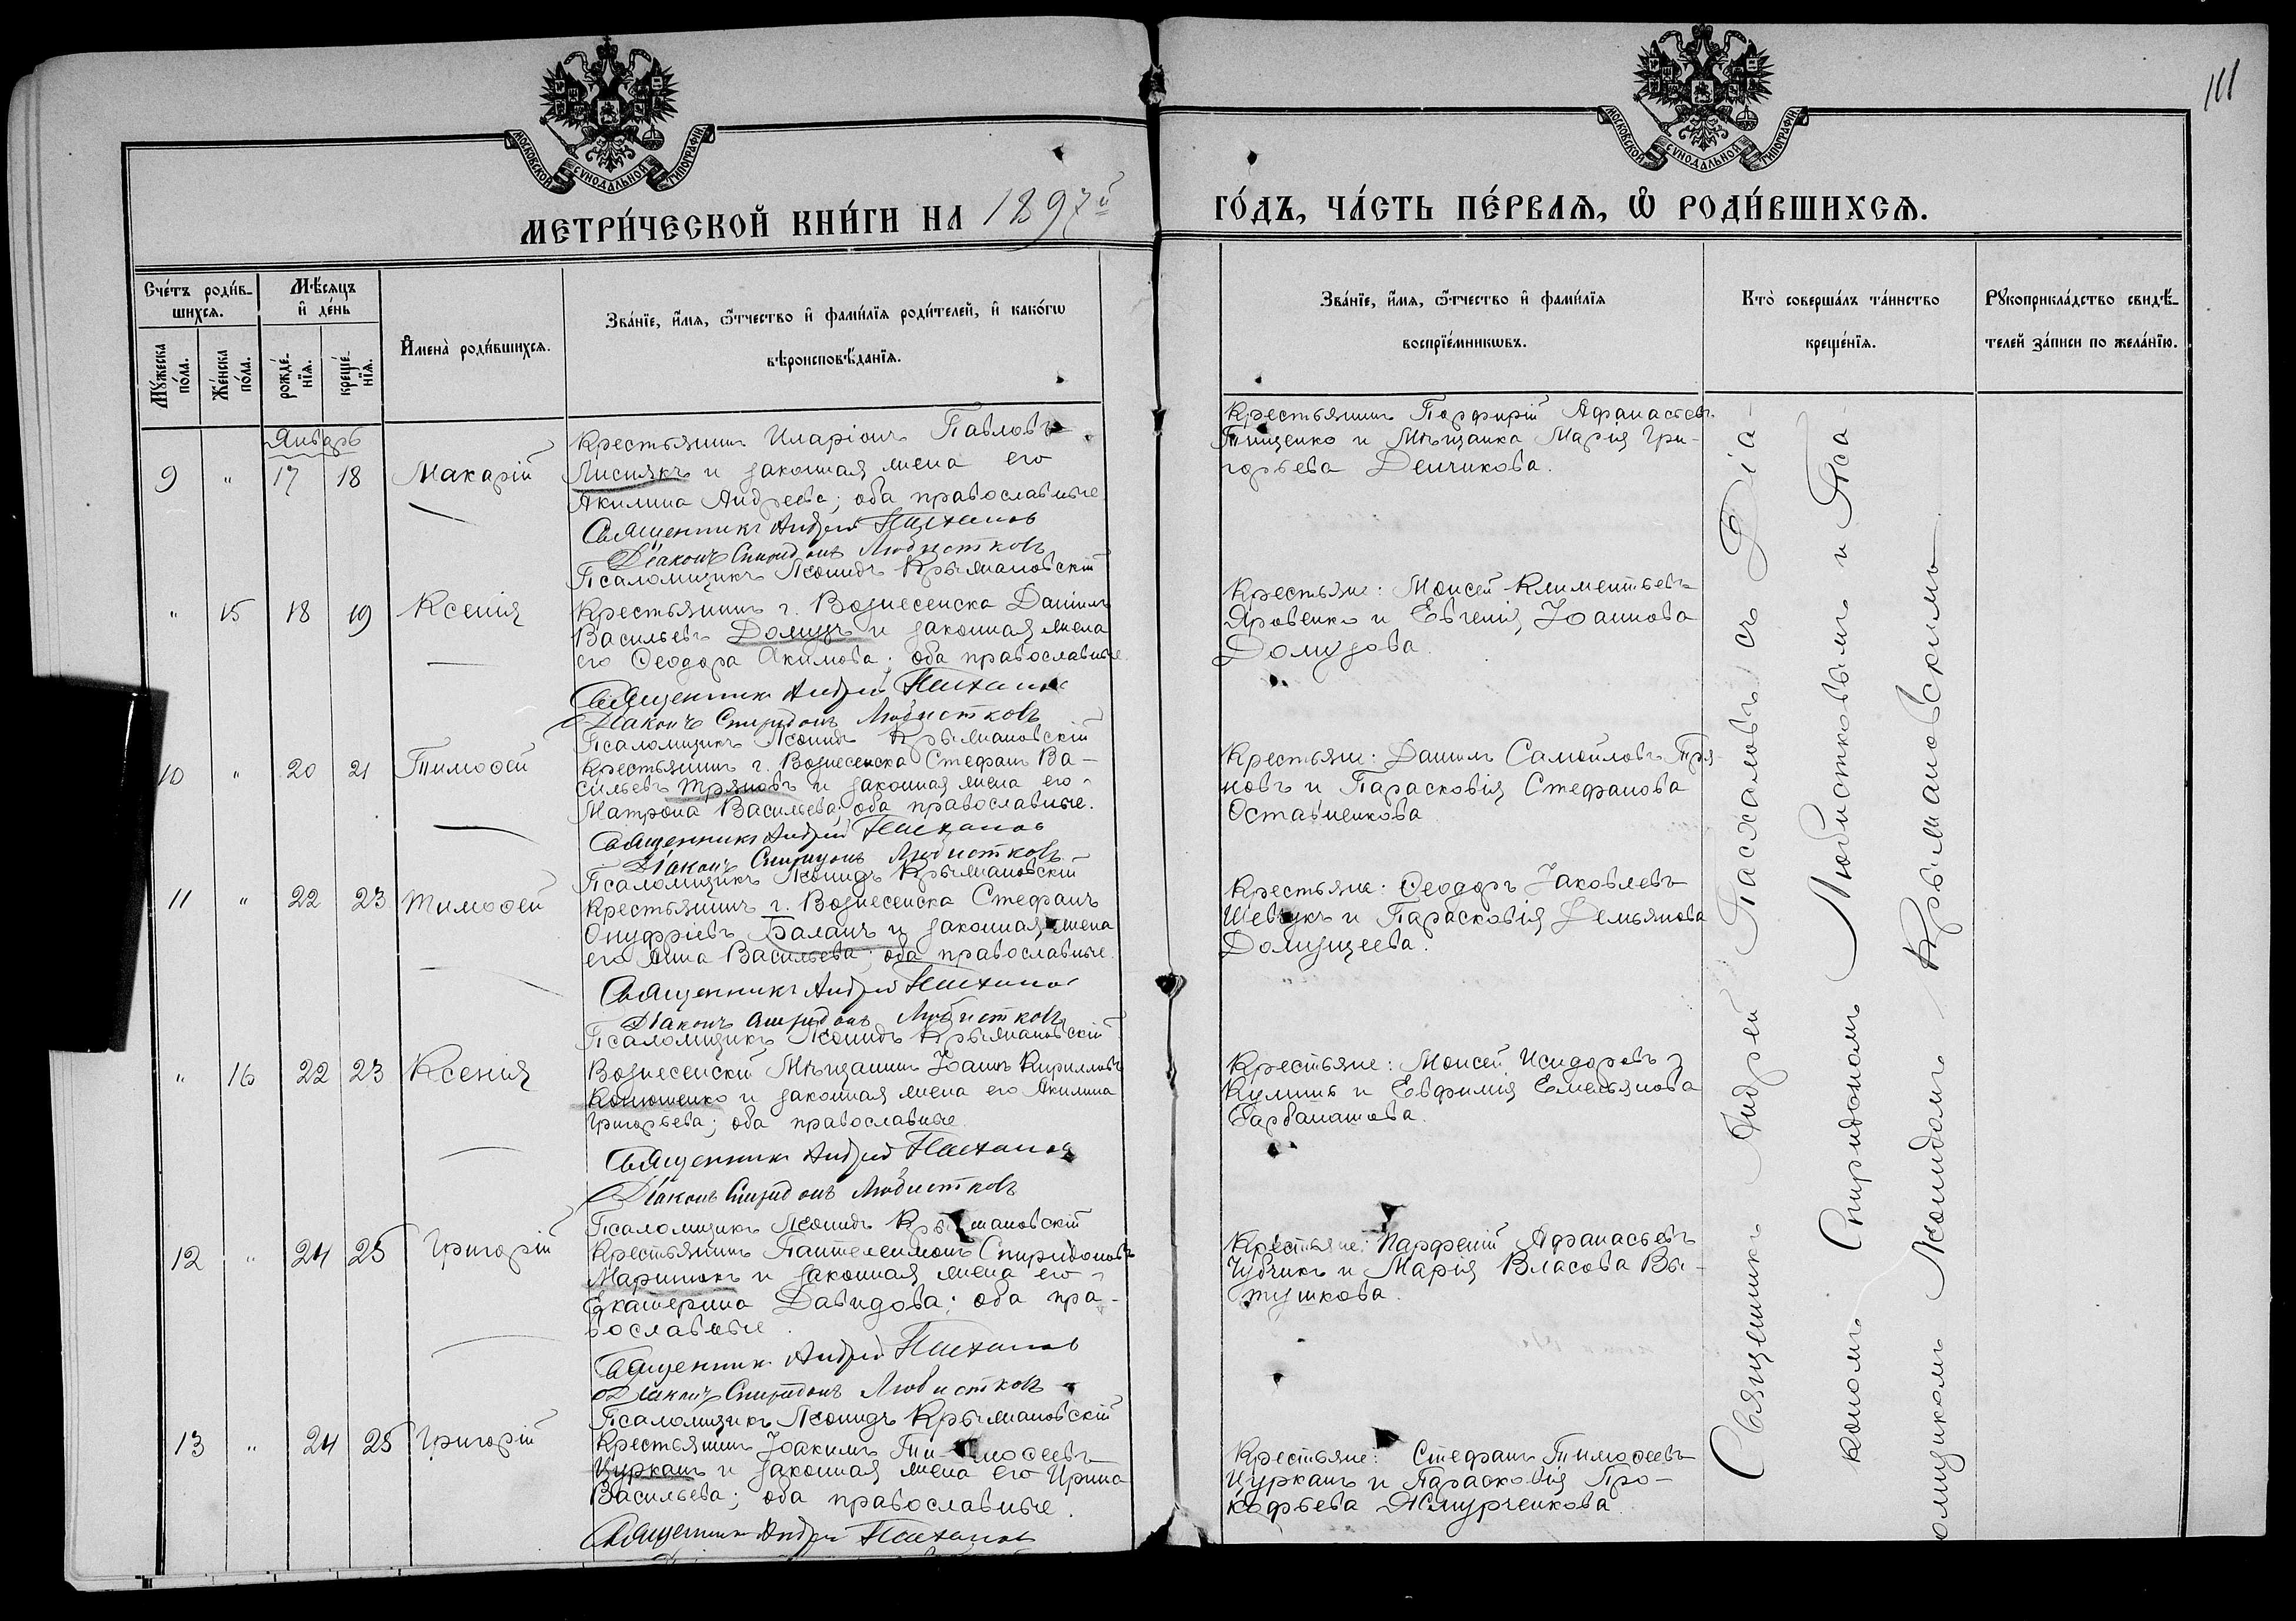 111
МОСКОВСКОЙ СУНОДАЛЬНОЙ ТИПОГРАФІИ
МОСКОВСКОЙ СУНОДАЛЬНОЙ ТИПОГРАФІИ
МЕТРИ́ЧЕСКОЙ КНИ́ГИ НА 1897й
ГО́ДЪ, ЧА́СТЬ ПЕ́РВАѦ, Ѡ РОДИ́ВШИХСѦ.
Сче́тъ роди́в-
шихсѧ.
Мꙋ́жеска по́ла.
Же́нска по́ла.
Мѣ́сѧцъ и де́нь
рожде́-
нїѧ.
креще́-
нїѧ.
И҆мена̀ роди́вшихсѧ.
Зва́нїе, и҆́мѧ, ѻ҆́тчество и҆ фами́лїѧ роди́телей, и҆ како́гѡ
вѣроисповѣ́данїѧ.
Зва́нїе, и҆́мѧ, ѻ҆́тчество и҆ фами́лїѧ
воспрїе́мникѡвъ.
Кто̀ соверша́лъ та́инство
креще́нїѧ.
Рꙋкоприкла́дство свидѣ́-
телей за́писи по жела́нїю.
Январь
9 " 17 18 Макарій
Крестьянинъ Иларіонъ Павловъ
Лиснякъ и законная жена его
Акилина Андреева; оба православные
Священникъ Андрей Пасхаловъ
Діаконъ Спиридонъ Любистковъ
Псаломщикъ Леонидъ Крыжановскій
Крестьянинъ Порфирій Афанасьевъ
Тищенко и Мѣщанка Марія Гри-
горьева Денчикова.
" 15 18 19 Ксенія
Крестьянинъ г. Вознесенска Даніилъ
Васильевъ Домузъ и законная жена
его Ѳеодора Акимова; оба православные
Священникъ Андрей Пасхаловъ
Діаконъ Спиридонъ Любистковъ
Псаломщикъ Леонидъ Крыжановскій
Крестьяне: Моисей Климентьевъ
Яровенко и Евгенія Іоаннова
Домузова.
10 " 20 21 Тимоѳей
Крестьянинъ г. Вознесенска Стефанъ Ва-
сильевъ Тряновъ и законная жена его
Матрона Васильева; оба православные.
Священникъ Андрей Пасхаловъ
Діаконъ Спиридонъ Любистковъ
Псаломщикъ Леонидъ Крыжановскій
Крестьяне: Даніилъ Самойловъ Тря-
новъ и Парасковія Стефанова
Оставненкова
11 " 22 23 Тимоѳей
Крестьянинъ г. Вознесенска Стефанъ
Онуфріевъ Баланъ и законная жена
его Анна Васильева; оба православные
Священникъ Андрей Пасхаловъ
Діаконъ Спиридонъ Любистковъ
Псаломщикъ Леонидъ Крыжановскій
Крестьяне: Ѳеодоръ Іаковлевъ
Шевчукъ и Парасковія Демьянова
Домущеева.
" 16 22 23 Ксенія
Вознесенскій Мѣщанинъ Іоаннъ Кирилловъ
Конюшенко и законная жена его Акилина
Григорьева; оба православные
Священникъ Андрей Пасхаловъ
Діаконъ Спиридонъ Любистковъ
Псаломщикъ Леонидъ Крыжановскій
Крестьяне: Моисей Исидоровъ
Кулишъ и Евфимія Емельянова
Гарбанатова.
12 " 24 25 Григорій
Крестьянинъ Пантелеимонъ Спиридоновъ
Маринюкъ и законная жена его
Екатерина Давидова; оба пра-
вославные
Священникъ Андрей Пасхаловъ
Діаконъ Спиридонъ Любистковъ
Псаломщикъ Леонидъ Крыжановскій
Крестьяне: Парфеній Афанасьевъ
Чубчикъ и Марія Власова Вы-
тушкова.
13 " 24 25 Григорій
Крестьянинъ Іоакимъ Тимоѳеевъ
Цурканъ и законная жена его Ирина
Васильева; оба православные.
Священникъ Андрей Пасхаловъ
Крестьяне: Стефанъ Тимоѳеевъ
Цурканъ и Парасковія Про-
кофьева Жмурченкова.
Священникъ Андрей Пасхаловъ съ Діа-
кономъ Спиридономъ Любистковымъ и Пса-
ломщикомъ Леонидомъ Крыжановскимъ